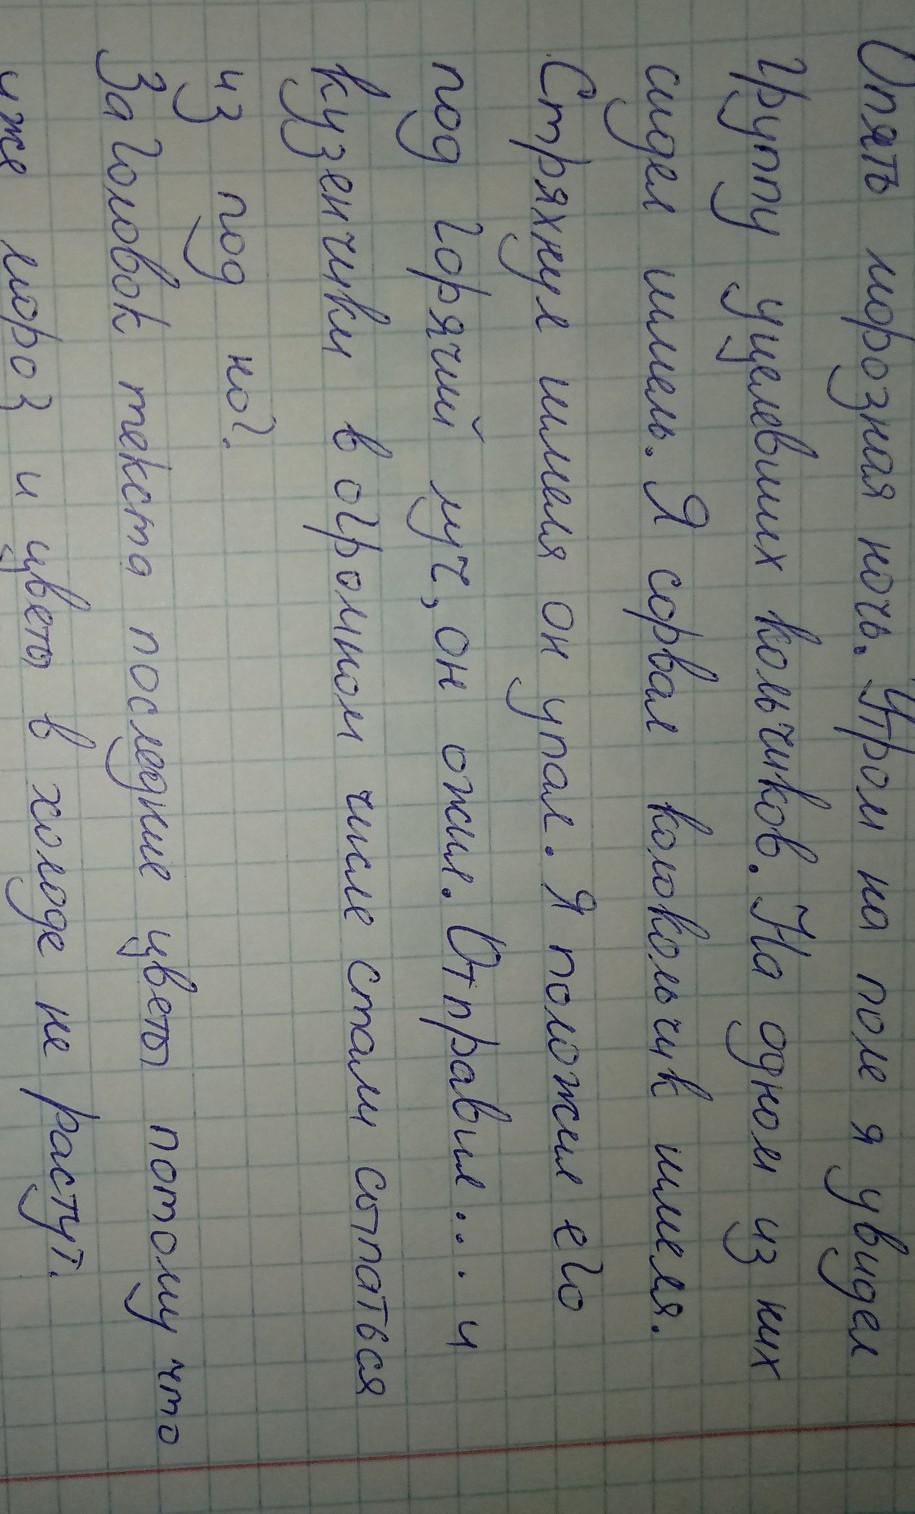 Опять морозная ночь. Утром на поле я увидел
группу уцелевших кольчиков. На одном из них
сидел шмель. Я сорвал колокольчик шмеля.
Стряхнул шмеля он упал. Я положил его
под горячий луч, он ожил. Отправил... и
кузенчики в огромном числе стали сыпаться
из под ног.
Заголовок текста последние цветы потому что
уже мороз и цветы в холоде не растут.